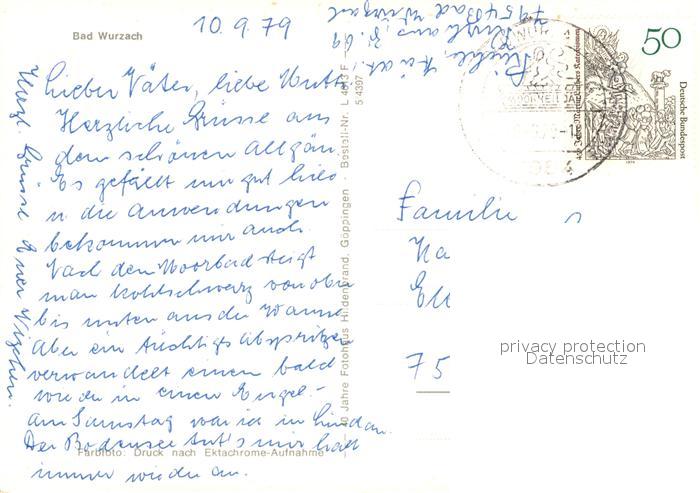 Bad Wurzach
10.9.79
Lieber Vater, liebe Mutti
Herzliche Grüsse aus
dem schönen Allgäu.
Es gefällt mir gut hier
u die Anwendungen
bekommen mir auch.
Nach dem Moorbad steigt
man kohlschwarz von oben
bis unten aus der Wanne
Aber ein tüchtiges abspritzen
verwandelt einen bald
wieder in einen Engel.-
Am Samstag war ich in Lindau.
Der Bodensee tut's mir halt
immer wieder an.
Herzl. Grüsse Euer
Farbfoto: Druck nach Ektachrome-Aufnahme
40 Jahre Fotohaus Hildenbrand, Göppingen · Bestell-Nr. L 4613 F
5 4397
7954 Bad Wurzach
50
Deutsche Bundespost
Familie
Ha
75
privacy protection
Datenschutz